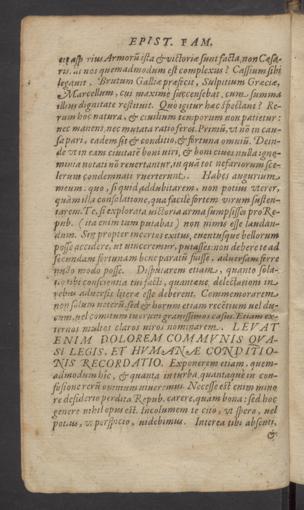 EPIST. FAM.
rius Armorũ ista & victoriæ sunt facta, non Cæsa-
ris. at nos quemadmodum est complexus? Cassium sibi
legauit. Brutum Galliæ præfecit, Sulpitium Græciæ,
Marcellum, cui maximè succensebat, cum summa
illius dignitate restituit. Quò igitur hæc spectant? Re-
rum hoc natura, & ciuilium temporum non patietur:
nec manens, nec mutata ratio feret. Primũ, vt nõ in cau-
sa pari, eadem sit & conditio, & fortuna omniũ. Dein-
de vt in eam ciuitatẽ boni viri, & boni ciues nulla igno-
minia notati nõ reuertantur, in quã tot nefariorum sce-
lerum condemnati reuerterunt. Habes augurium
meum: quo, si quid addubitarem, non potiùs vterer,
quàm illa consolatione, qua facilè fortem virum susten-
tarem. Te, si explorata victoria arma sumpsisses pro Re-
pub. (ita enim tum putabas) non nimis esse laudan-
dum. Sin propter incertos exitus, euentusque bellorum
posse accidere, vt vinceremur, putasses: non debere te ad
secundam fortunam bene paratũ fuisse, aduersam ferre
nullo modo posse. Disputarem etiam, quanto sola-
tio tibi conscientia tui facti, quantæue delectationi in
rebus aduersis literæ esse deberent. Commemorarem
non solum veterũ, sed & horum etiam recẽtium vel du-
cum, vel comitum tuorum grauissimos casus. Etiam ex-
ternos multos claros viros nominarem. LEVAT
ENIM DOLOREM COMMVNIS QVA-
SI LEGIS, ET HVMANÆ CONDITIO-
NIS RECORDATIO. Exponerem etiam, quem-
admodum hîc, & quanta in turba, quantaque in con-
fusione rerũ omnium viueremus. Necesse est enim mino
re desiderio perdita Repub. carere, quàm bona: sed hoc
genere nihil opus est. Incolumem te citò, vt spero, vel
potius, vt perspicio, videbimus. Interea tibi absenti,
&